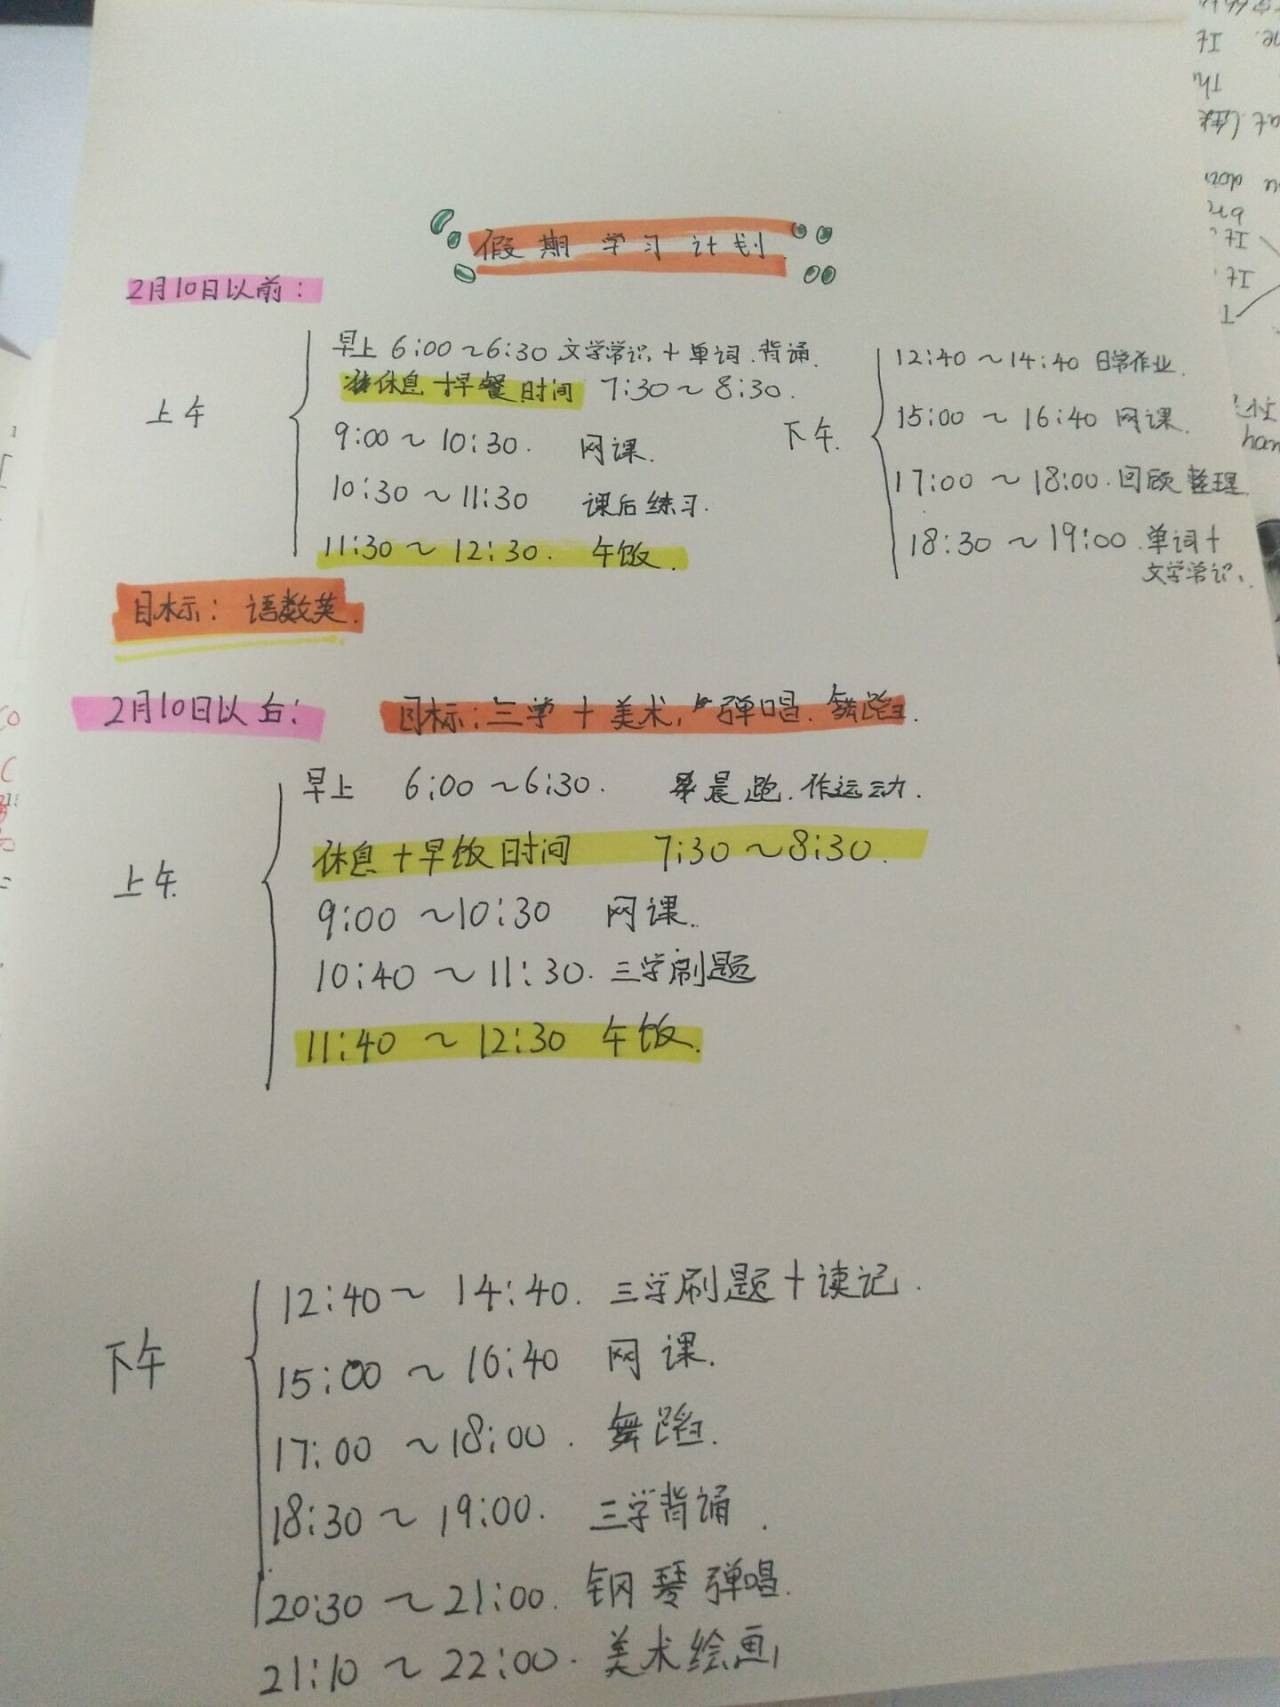 假期学习计划
2月10日以前：
上午
早上 6:00~6:30 文学常识+单词.背诵.
休息+早餐时间 7:30~8:30.
9:00~10:30. 网课.
10:30~11:30 课后练习.
11:30~12:30. 午饭.
下午.
12:40~14:40 日常作业.
15:00~16:40 网课.
17:00~18:00.回顾整理
18:30~19:00.单词+
文学常识.
目标：语数英.
2月10日以后：
目标：三学+美术,弹唱.舞蹈.
上午.
早上 6:00~6:30. 晨跑.作运动.
休息+早饭时间 7:30~8:30.
9:00~10:30 网课.
10:40~11:30.三学刷题
11:40~12:30 午饭.
下午
12:40~14:40.三学刷题+读记.
15:00~16:40 网课.
17:00~18:00. 舞蹈.
18:30~19:00. 三学背诵.
20:30~21:00. 钢琴弹唱.
21:10~22:00. 美术绘画
It
Th
It.
It